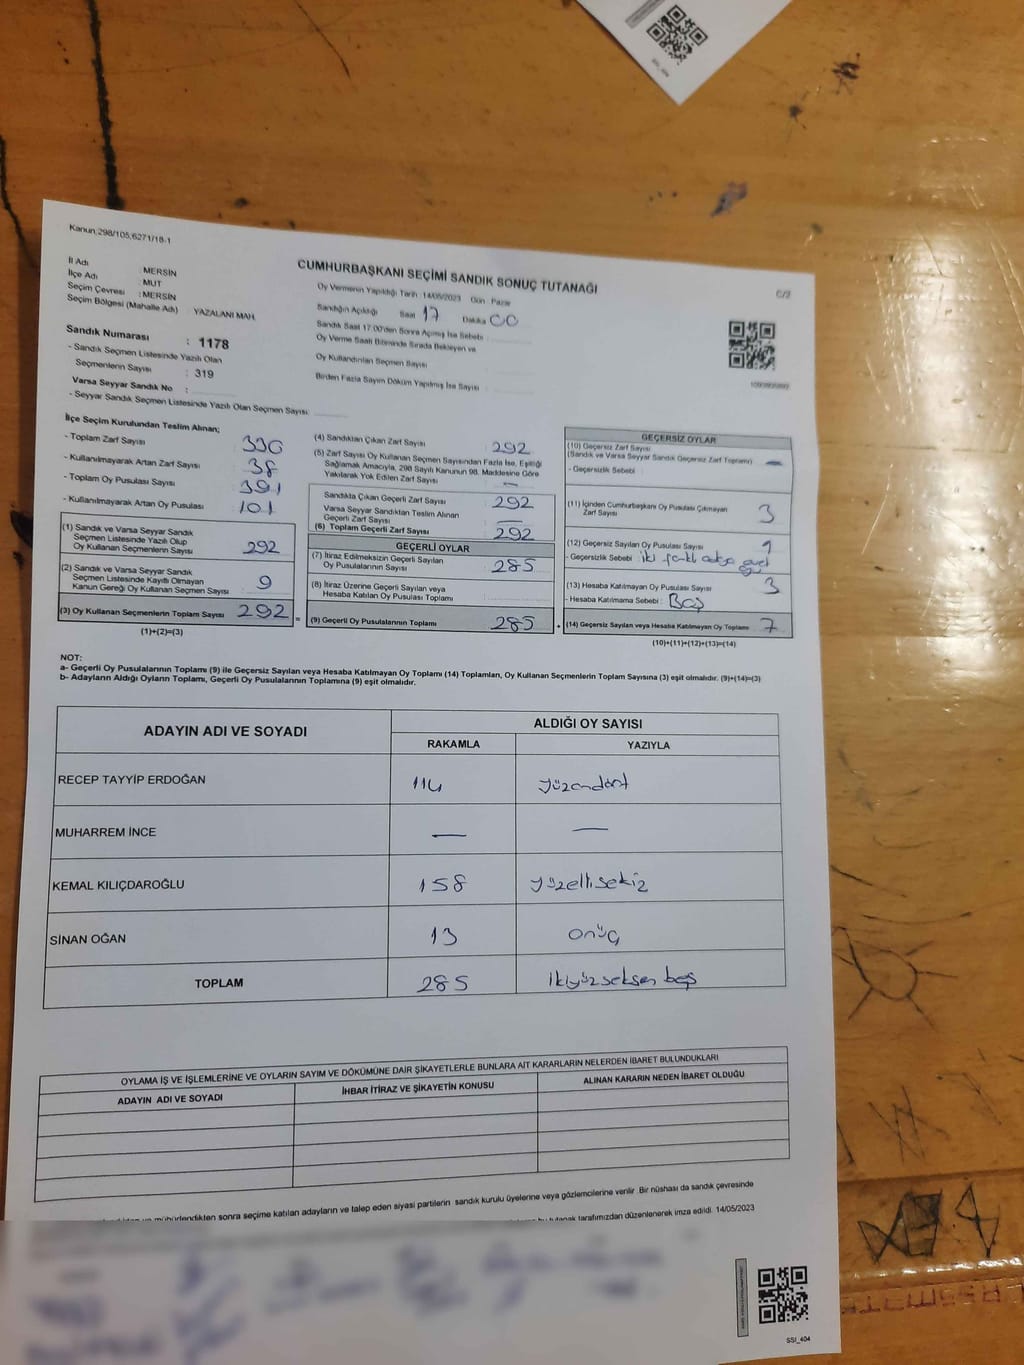 Kanun;298/105,6271/18-1
C/2
CUMHURBAŞKANI SEÇİMİ SANDIK SONUÇ TUTANAĞI
İl Adı : MERSİN
İlçe Adı : MUT
Seçim Çevresi : MERSİN
Seçim Bölgesi (Mahalle Adı) : YAZALANI MAH.
Sandık Numarası : 1178
- Sandık Seçmen Listesinde Yazılı Olan
Seçmenlerin Sayısı : 319
Varsa Seyyar Sandık No :
- Seyyar Sandık Seçmen Listesinde Yazılı Olan Seçmen Sayısı :
Oy Vermenin Yapıldığı Tarih :14/05/2023 Gün : Pazar
Sandığın Açıldığı Saat 17 Dakika 00
Sandık Saat 17:00'den Sonra Açılmış İse Sebebi :
Oy Verme Saati Bitiminde Sırada Bekleyen ve
Oy Kullandırılan Seçmen Sayısı :
Birden Fazla Sayım Döküm Yapılmış İse Sayısı :
İlçe Seçim Kurulundan Teslim Alınan;
- Toplam Zarf Sayısı : 330
- Kullanılmayarak Artan Zarf Sayısı : 38
- Toplam Oy Pusulası Sayısı : 391
- Kullanılmayarak Artan Oy Pusulası : 101
(1) Sandık ve Varsa Seyyar Sandık
Seçmen Listesinde Yazılı Olup
Oy Kullanan Seçmenlerin Sayısı 292
(2) Sandık ve Varsa Seyyar Sandık
Seçmen Listesinde Kayıtlı Olmayan
Kanun Gereği Oy Kullanan Seçmen Sayısı : 9
(3) Oy Kullanan Seçmenlerin Toplam Sayısı 292
(1)+(2)=(3)
(4) Sandıktan Çıkan Zarf Sayısı : 292
(5) Zarf Sayısı Oy Kullanan Seçmen Sayısından Fazla İse, Eşitliği
Sağlamak Amacıyla, 298 Sayılı Kanunun 98. Maddesine Göre
Yakılarak Yok Edilen Zarf Sayısı : —
Sandıkta Çıkan Geçerli Zarf Sayısı : 292
Varsa Seyyar Sandıktan Teslim Alınan
Geçerli Zarf Sayısı : —
(6) Toplam Geçerli Zarf Sayısı : 292
GEÇERLİ OYLAR
(7) İtiraz Edilmeksizin Geçerli Sayılan
Oy Pusulalarının Sayısı : 285
(8) İtiraz Üzerine Geçerli Sayılan veya
Hesaba Katılan Oy Pusulası Toplamı :
(9) Geçerli Oy Pusulalarının Toplamı : 285
GEÇERSİZ OYLAR
(10) Geçersiz Zarf Sayısı
(Sandık ve Varsa Seyyar Sandık Geçersiz Zarf Toplamı) : —
- Geçersizlik Sebebi :
(11) İçinden Cumhurbaşkanı Oy Pusulası Çıkmayan
Zarf Sayısı : 3
(12) Geçersiz Sayılan Oy Pusulası Sayısı : 1
- Geçersizlik Sebebi : iki farklı
(13) Hesaba Katılmayan Oy Pusulası Sayısı : 3
- Hesaba Katılmama Sebebi : Boş
(14) Geçersiz Sayılan veya Hesaba Katılmayan Oy Toplamı : 7
(10)+(11)+(12)+(13)=(14)
NOT:
a- Geçerli Oy Pusulalarının Toplamı (9) ile Geçersiz Sayılan veya Hesaba Katılmayan Oy Toplamı (14) Toplamları, Oy Kullanan Seçmenlerin Toplam Sayısına (3) eşit olmalıdır. (9)+(14)=(3)
b- Adayların Aldığı Oyların Toplamı, Geçerli Oy Pusulalarının Toplamına (9) eşit olmalıdır.
ADAYIN ADI VE SOYADI ALDIĞI OY SAYISI
RAKAMLA YAZIYLA
RECEP TAYYİP ERDOĞAN 114 yüzondört
MUHARREM İNCE — —
KEMAL KILIÇDAROĞLU 158 yüzellisekiz
SİNAN OĞAN 13 onüç
TOPLAM 285 ikiyüzseksen beş
OYLAMA İŞ VE İŞLEMLERİNE VE OYLARIN SAYIM VE DÖKÜMÜNE DAİR ŞİKAYETLERLE BUNLARA AİT KARARLARIN NELERDEN İBARET BULUNDUKLARI
ADAYIN ADI VE SOYADI İHBAR İTİRAZ VE ŞİKAYETİN KONUSU ALINAN KARARIN NEDEN İBARET OLDUĞU
mühürlendikten sonra seçime katılan adayların ve talep eden siyasi partilerin sandık kurulu üyelerine veya gözlemcilerine verilir. Bir nüshası da sandık çevresinde
bu tutanak tarafımızdan düzenlenerek imza edildi. 14/05/2023
SSI_404